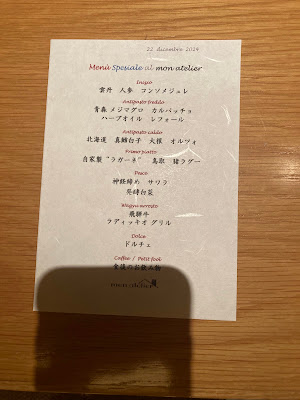 22 dicembre 2024
Menù Spesiale al mon atelier
Inizio
雲丹 人参 コンソメジュレ
Antipasto freddo
青森 メジマグロ カルパッチョ
ハーブオイル レフォール
Antipasto caldo
北海道 真鱈白子 大根 オルツィ
Primo piatto
自家製 “ラガーネ” 鳥取 猪ラグー
Pesce
神経締め サワラ
芳寿白菜
Wagyu arrosto
飛騨牛
ラディッキオ グリル
Dolce
ドルチェ
Coffee / Petit foot
食後のお飲み物
mon atelier